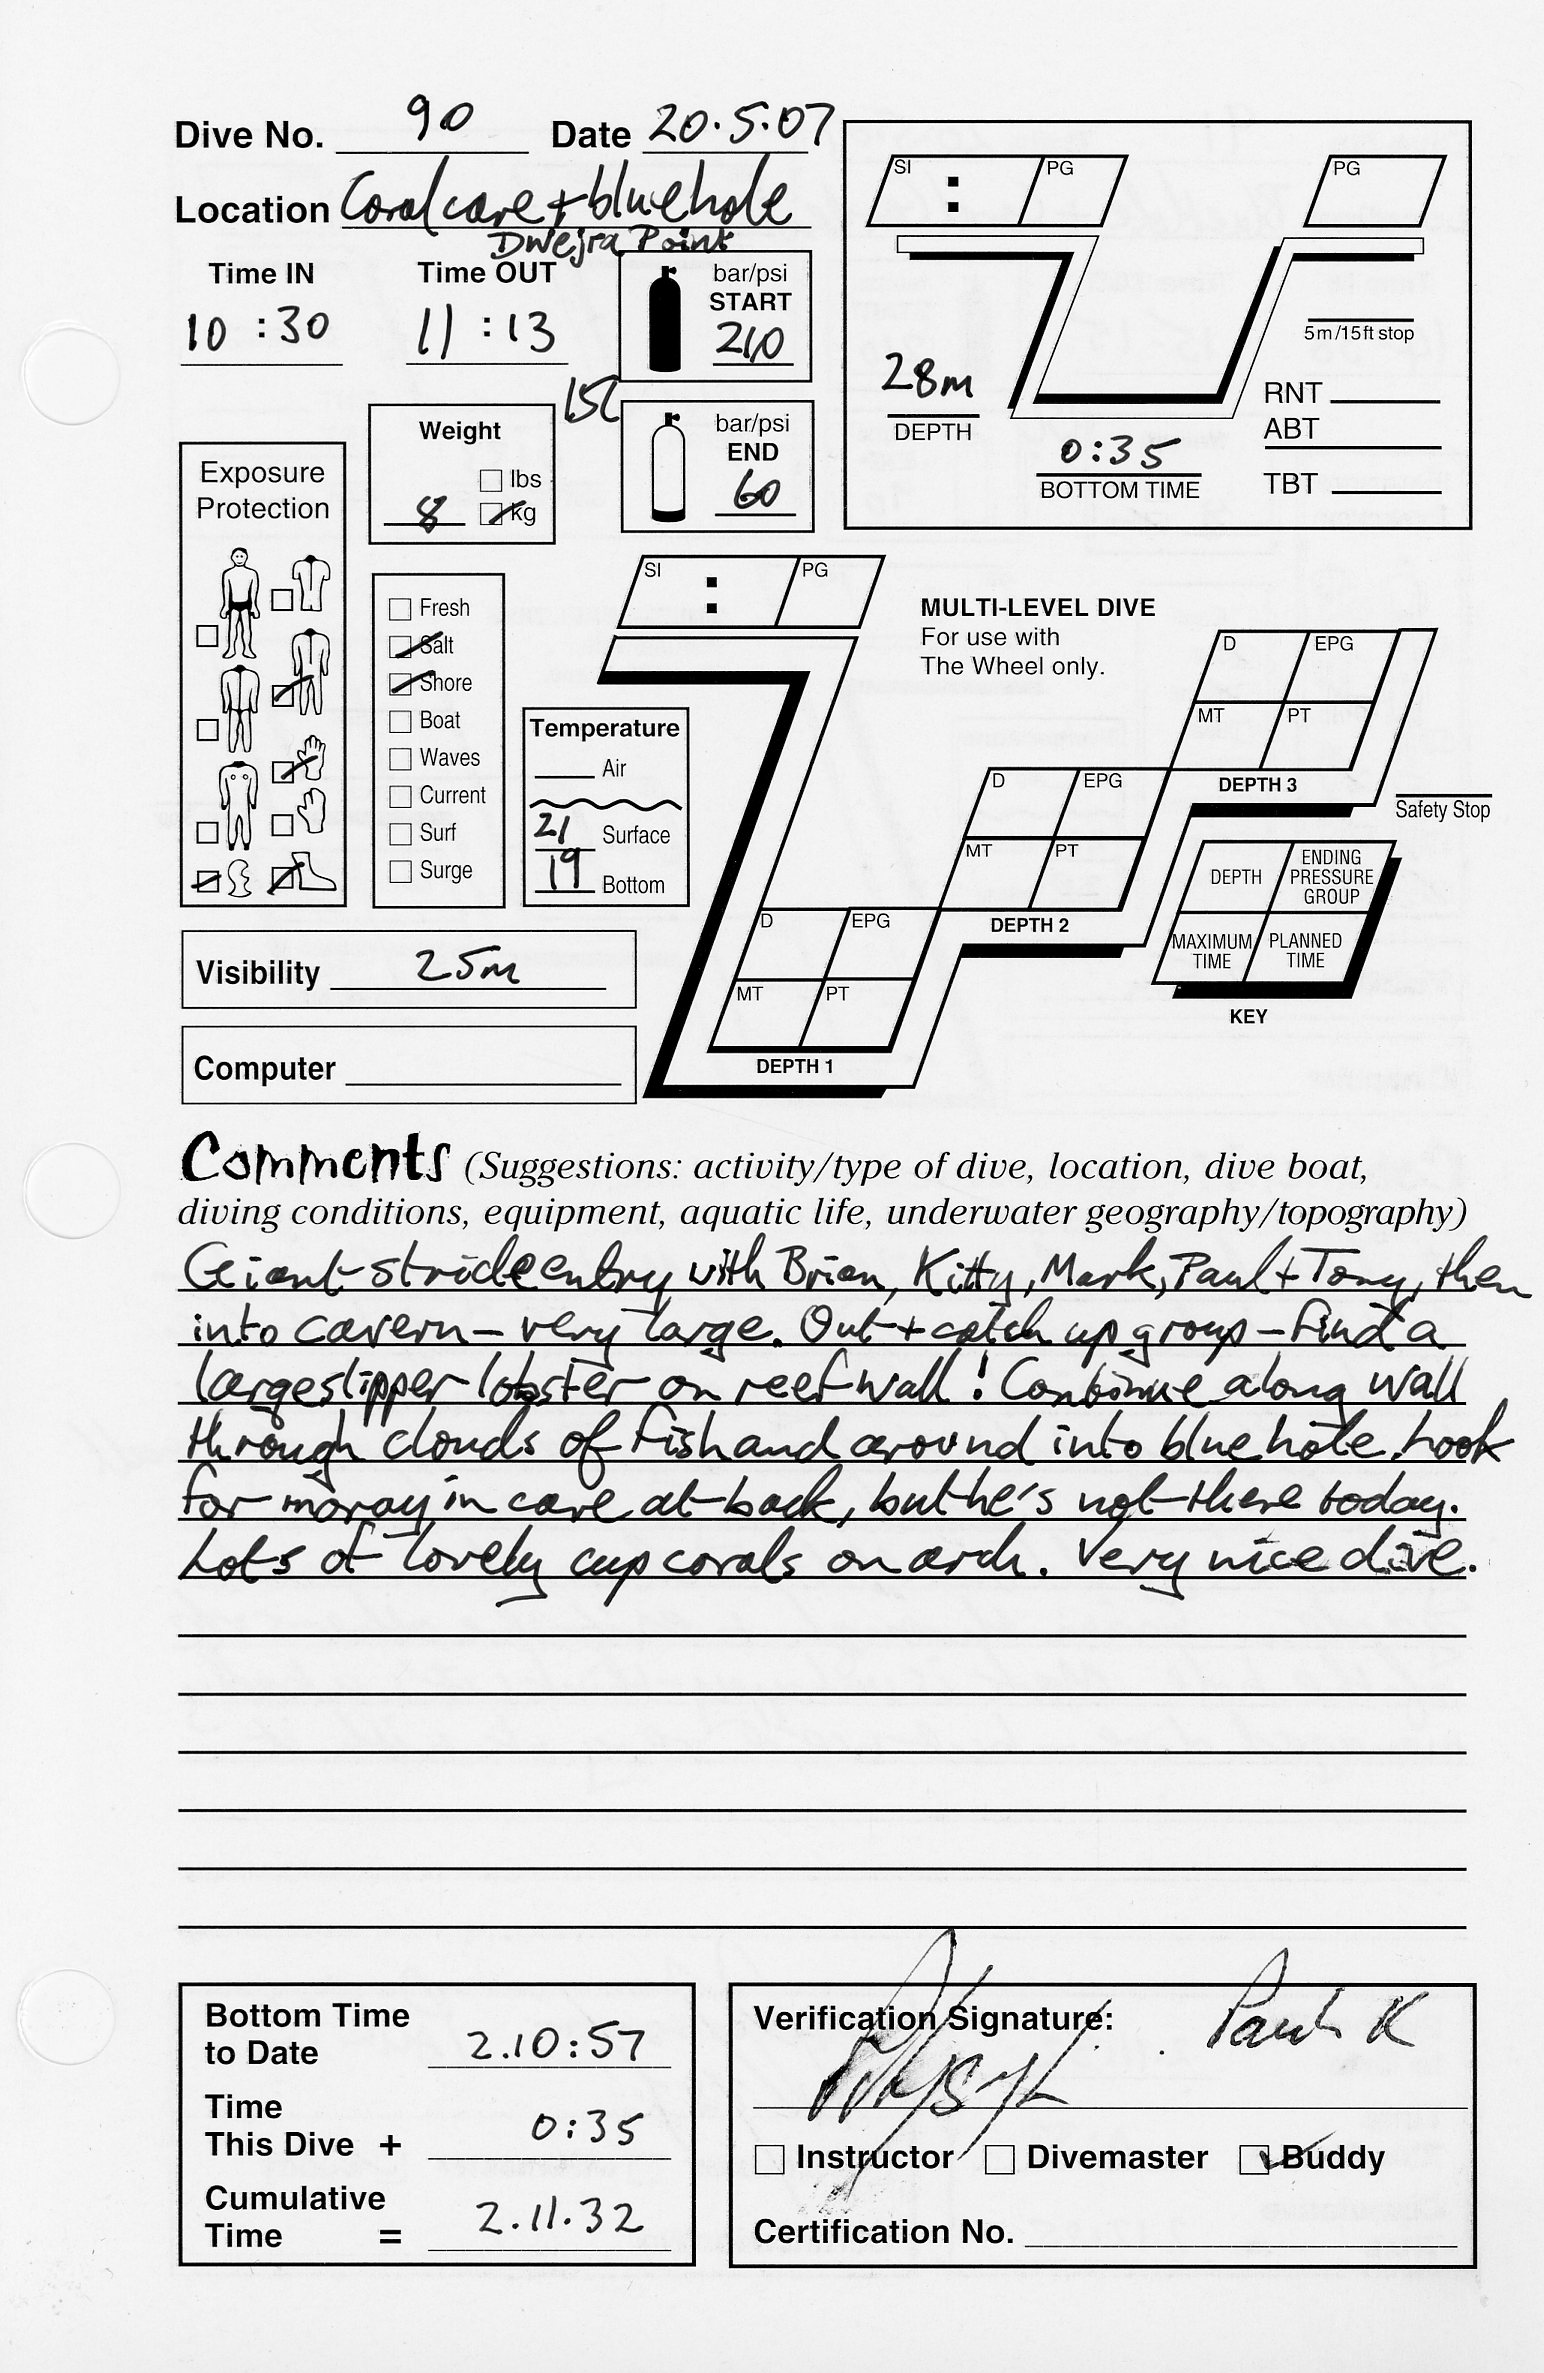 Dive No. 90 Date 20.5.07
Location Coral cave + blue hole
Dwejra Point
Time IN Time OUT
10 : 30 11 : 13
bar/psi
START
210
15L
bar/psi
END
60
Weight
lbs
8 kg
SI : PG
PG
5m/15ft stop
28m
DEPTH
0:35
BOTTOM TIME
RNT
ABT
TBT
Exposure
Protection
Fresh
Salt
Shore
Boat
Waves
Current
Surf
Surge
Temperature
Air
21 Surface
19 Bottom
Visibility 25m
Computer
SI : PG
MULTI-LEVEL DIVE
For use with
The Wheel only.
D EPG
MT PT
DEPTH 1
D EPG
MT PT
DEPTH 2
D EPG
MT PT
DEPTH 3
Safety Stop
DEPTH
ENDING
PRESSURE
GROUP
MAXIMUM
TIME
PLANNED
TIME
KEY
Comments (Suggestions: activity/type of dive, location, dive boat,
diving conditions, equipment, aquatic life, underwater geography/topography)
Giant stride entry with Brian, Kitty, Mark, Paul + Tony, then
into cavern – very large. Out + catch up group – find a
large slipper lobster on reef wall! Continue along wall
through clouds of fish and around into blue hole. Look
for moray in cave at back, but he's not there today.
Lots of lovely cup corals on arch. Very nice dive.
Bottom Time
to Date 2.10:57
Time
This Dive + 0:35
Cumulative
Time = 2.11.32
Verification Signature:
K
Instructor Divemaster Buddy
Certification No.